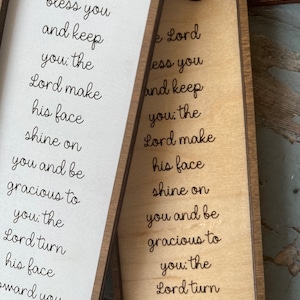 bless you
and keep
you; the
Lord make
his face
shine on
you and be
gracious to
you; the
Lord turn
his face
toward you
the Lord
bless you
and keep
you; the
Lord make
his face
shine on
you and be
gracious to
you; the
Lord turn